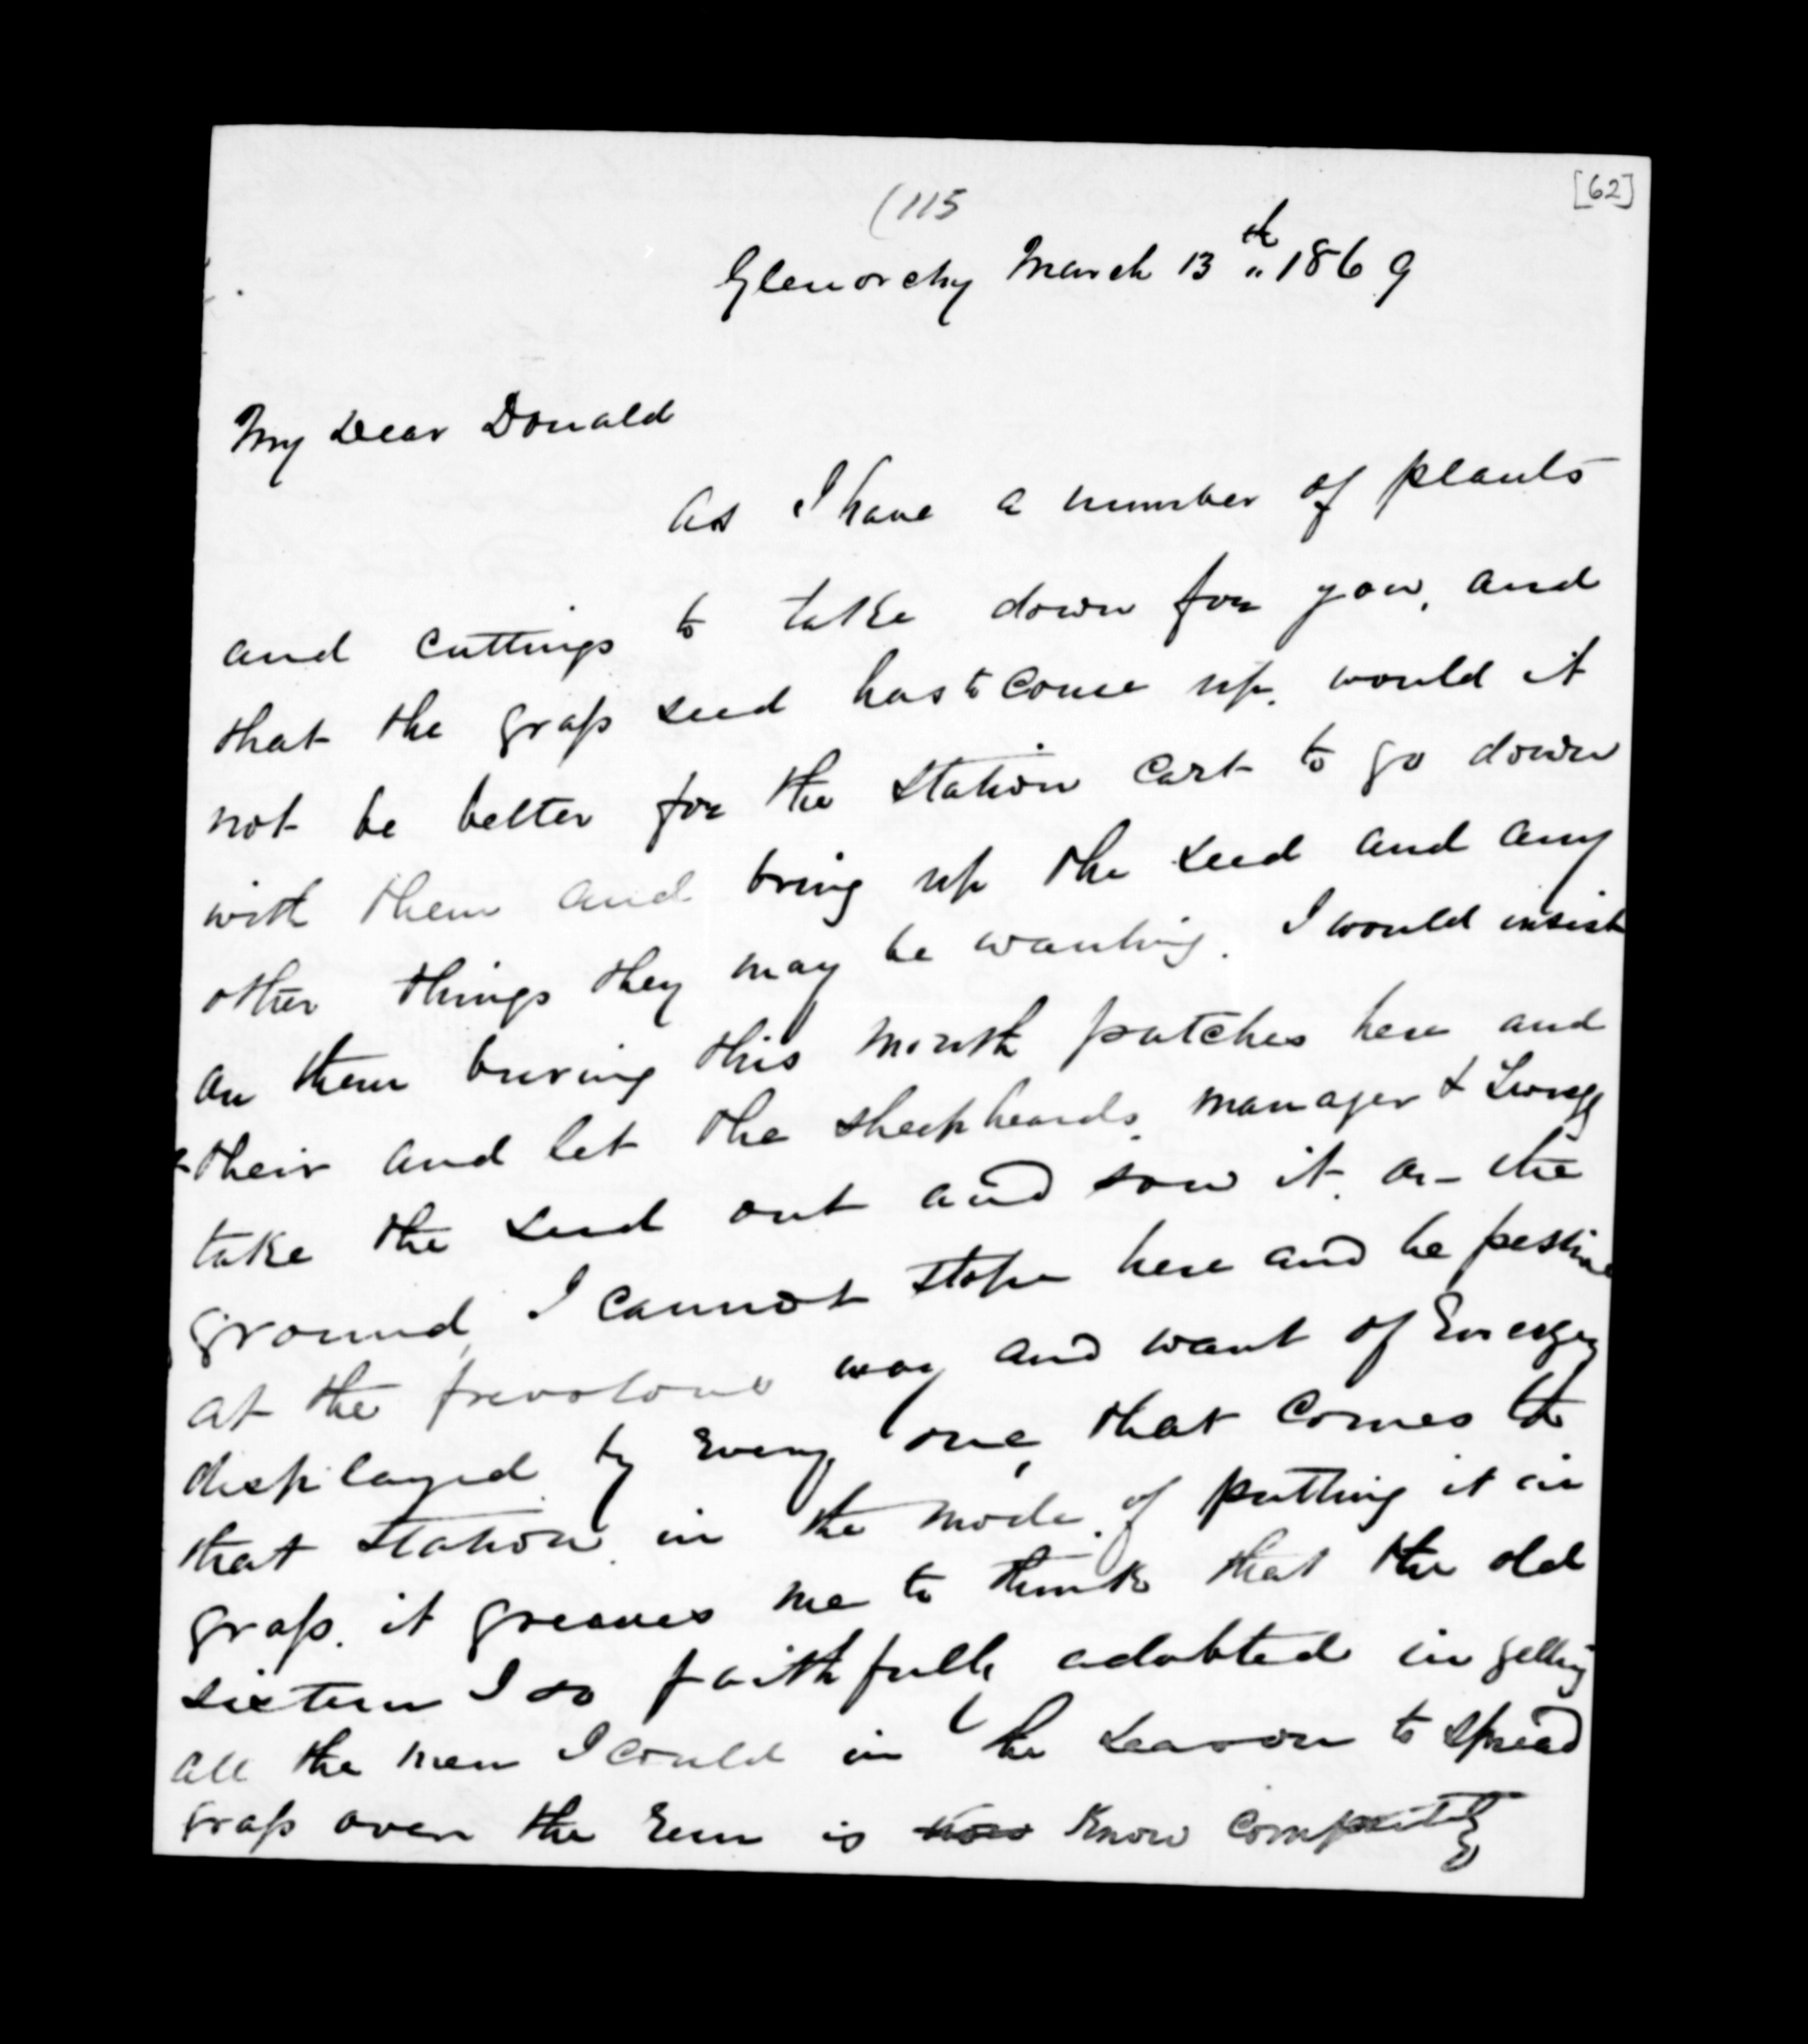 [62]
(115
Glenorchy March 13th 1869
My Dear Donald
As I have a number of plants
and cuttings to take down for you, and
that the grass seed has to come up. would it
not be better for the Station Cart to go down
with them and bring up the seed and any
other things they may be wanting. I would insist
on them burning this month patches here and
their and let the sheepheards, manager &
take the seed out and sow it. on the
ground, I cannot stope here and be
at the frevolous way and want of Energy
displayed by Every one, that comes to
that Station in the mode of putting it in
grass. it greaves me to think that the old
sistem I so faithfully adobted in getting
all the men I could in the season to spread
grass over the Run is now know completely